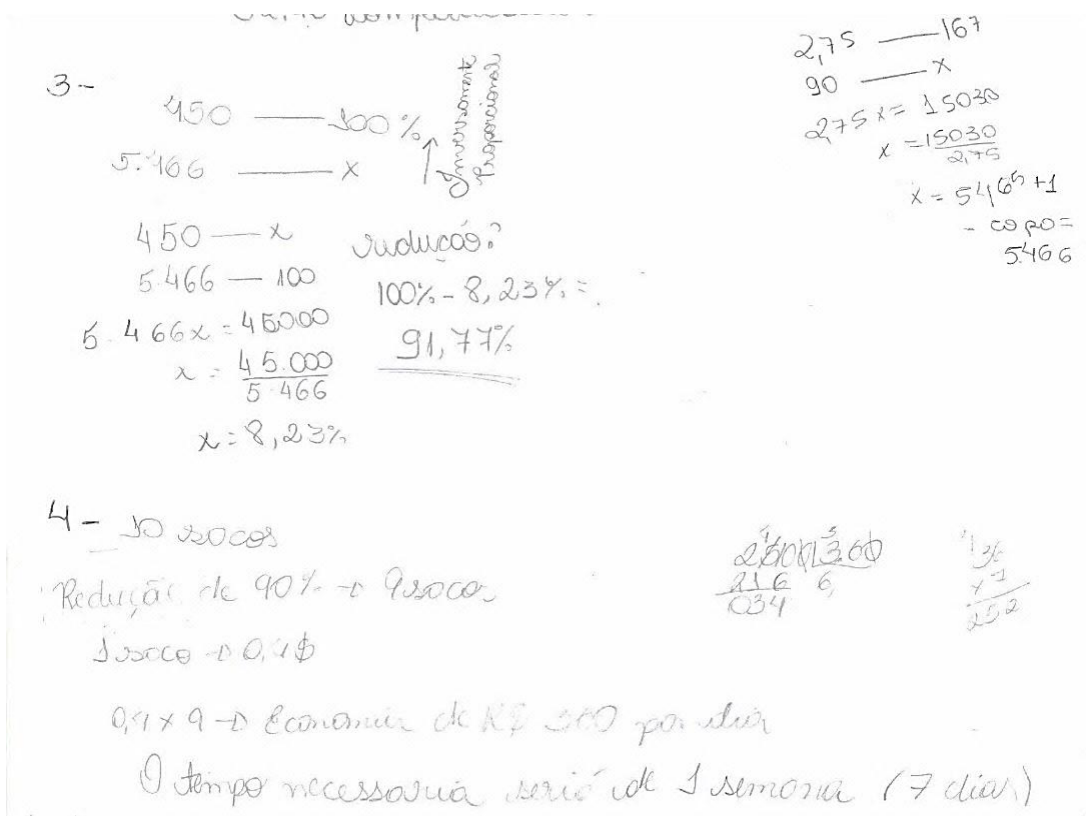 3-
450 —— 100%
5.466 —— x
Inversamente
Proporcional
450 — x
5.466 — 100
5.466x = 45000
x = 45.000
5.466
x = 8,23%
redução?
100% - 8,23% =
91,77%
2,75 —— 167
90 —— x
2,75x = 15030
x = 15030
2,75
x = 5465 +1
- copo =
5.466
4- 10 socos
Redução de 90% → 9 socos
1 soco → 0,4$
0,4 x 9 → Economia de R$ 360 por dia
O tempo necessaria será de 1 semana (7 dias)
216 6,
034
36
x 7
252